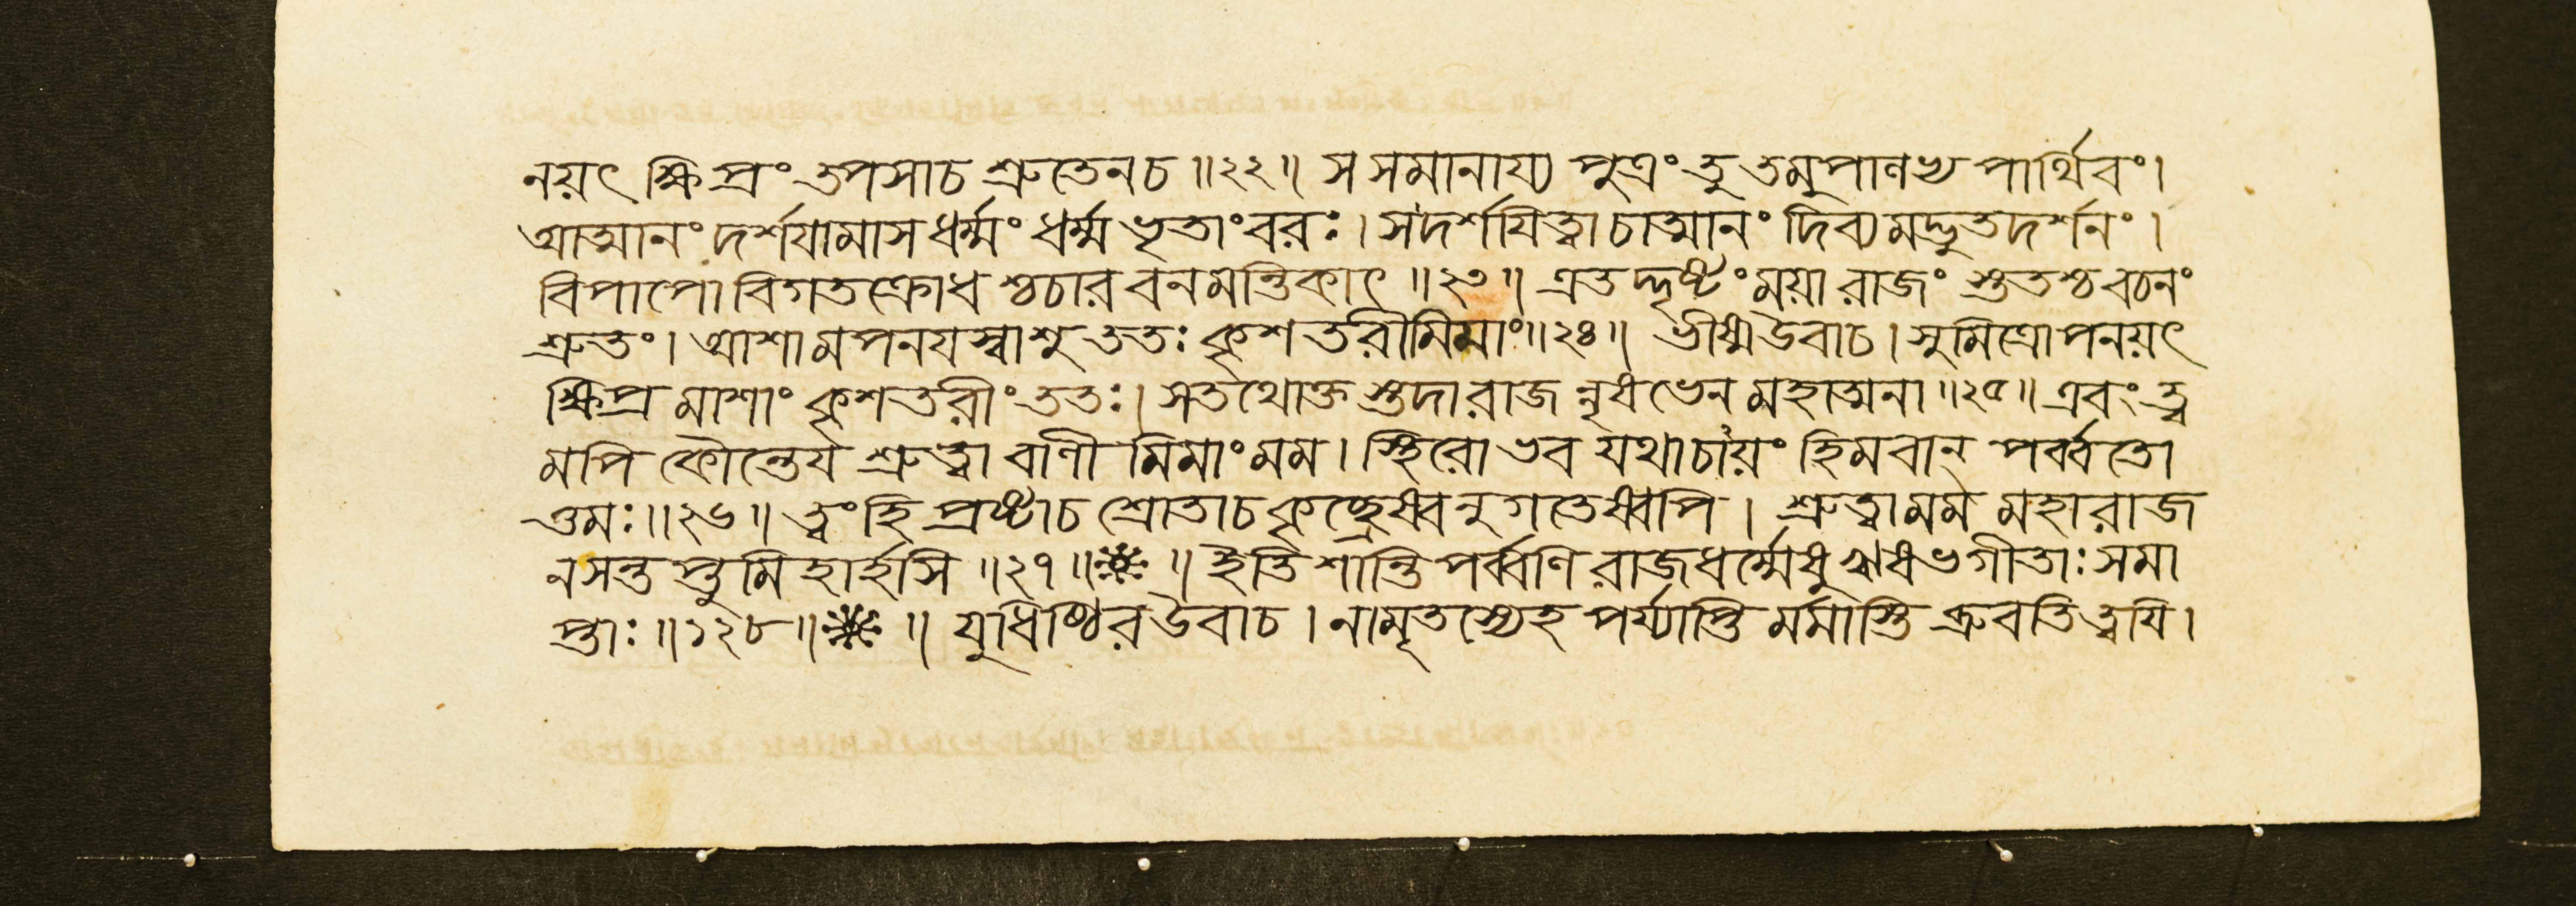 নয়ৎ ক্ষিপ্রং তপসাচ শ্রুতেনচ ॥২২॥ স সমানায্য পুত্রং তু তমুপালভ্য পার্থিবং।
আত্মানং দর্শযামাস ধর্ম্মং ধর্ম্মভৃতাংবরঃ। সদর্শযিত্বা চাত্মানং দিব্যমদ্ভুতদর্শনং।
বিপাপো বিগতক্রোধ শ্চচার বনমন্তিকাৎ ॥২৩॥ এতদ্দৃষ্টং ময়া রাজং স্তুতশ্চ বচনং
শ্রুতং। আশামপনযস্বাশু ততঃ কৃশতরীমিমাং॥২৪॥ ভীষ্মউবাচ। সুমিত্রোপনয়ৎ
ক্ষিপ্র মাশাং কৃশতরীং ততঃ। সতথোক্ত স্তদা রাজ নৃষভেন মহাত্মনা ॥২৫॥ এবং ত্ব
মপি কৌন্তেয শ্রুত্বা বাণী মিমাং মম। স্থিরো ভব যথাচায়ং হিমবান্ পর্ব্বতো
ত্তমঃ॥২৬॥ ত্বংহি প্রষ্টাচ শ্রোতাচ কৃচ্ছ্রেষ্বনুগতেষ্বপি। শ্রুত্বা মম মহারাজ
নসন্তপ্তুমিহার্হসি ॥২৭॥ ॥ ইতি শান্তিপর্ব্বণি রাজধর্ম্মেষু ঋষভগীতাঃ সমা
প্তাঃ ॥১২৮॥ ॥ যুধিষ্ঠিরউবাচ। নামৃতস্যেহ পর্য্যাপ্তি র্মমাস্তি ব্রুবতি ত্বযি।